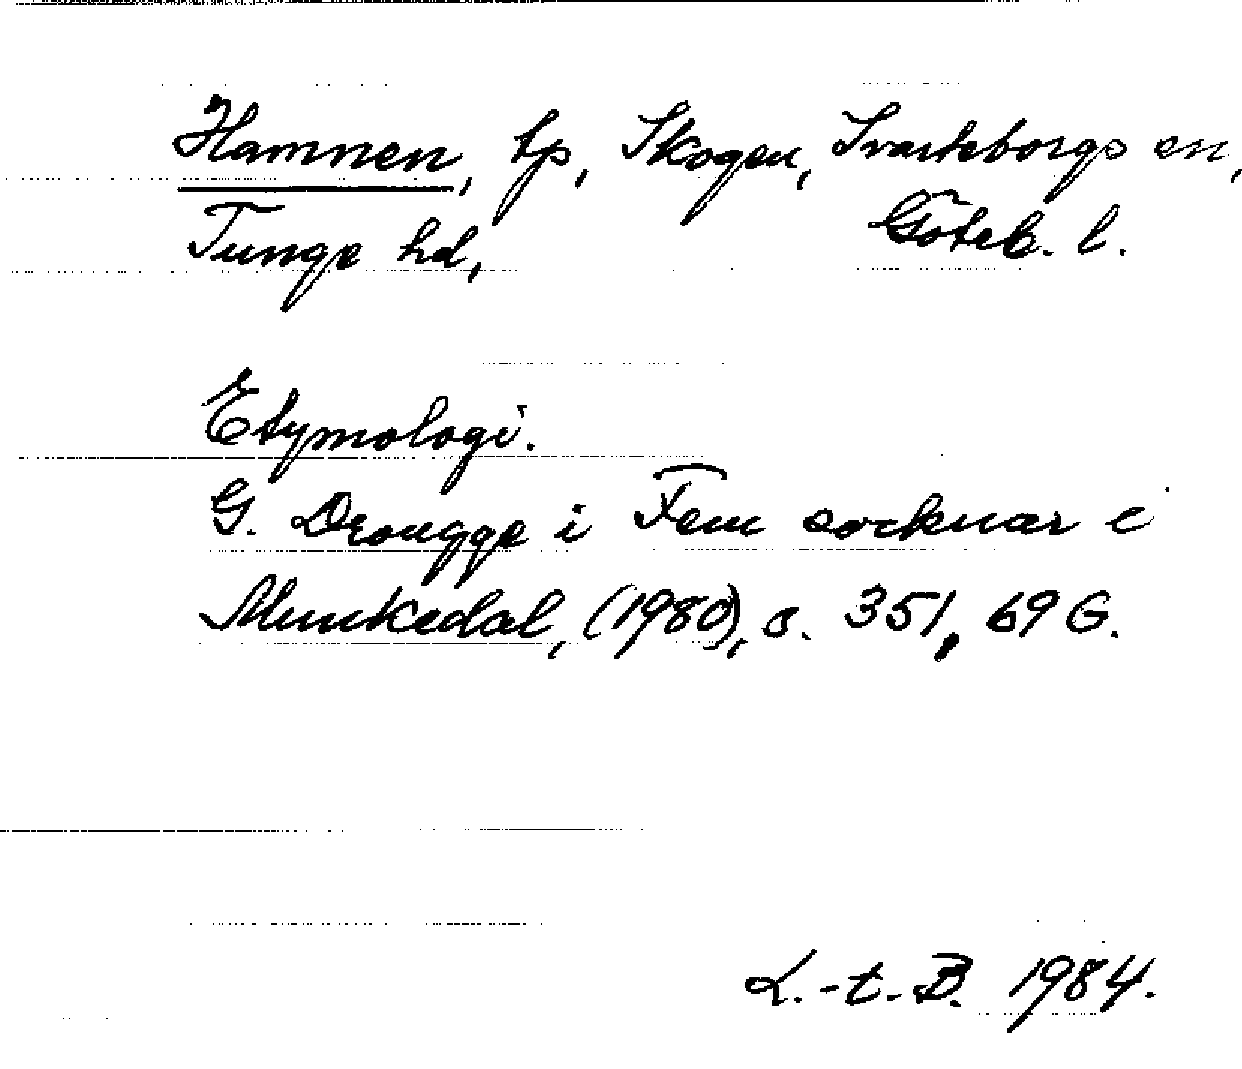 Hamnen, tp, Skogen, Svarteborgs sn,
Tunge hd, Göteb. l.
Etymologi.
G. Drougge i Fem socknar i
Munkedal, (1980), s. 351, 69 G.
L.-t. B. 1984.